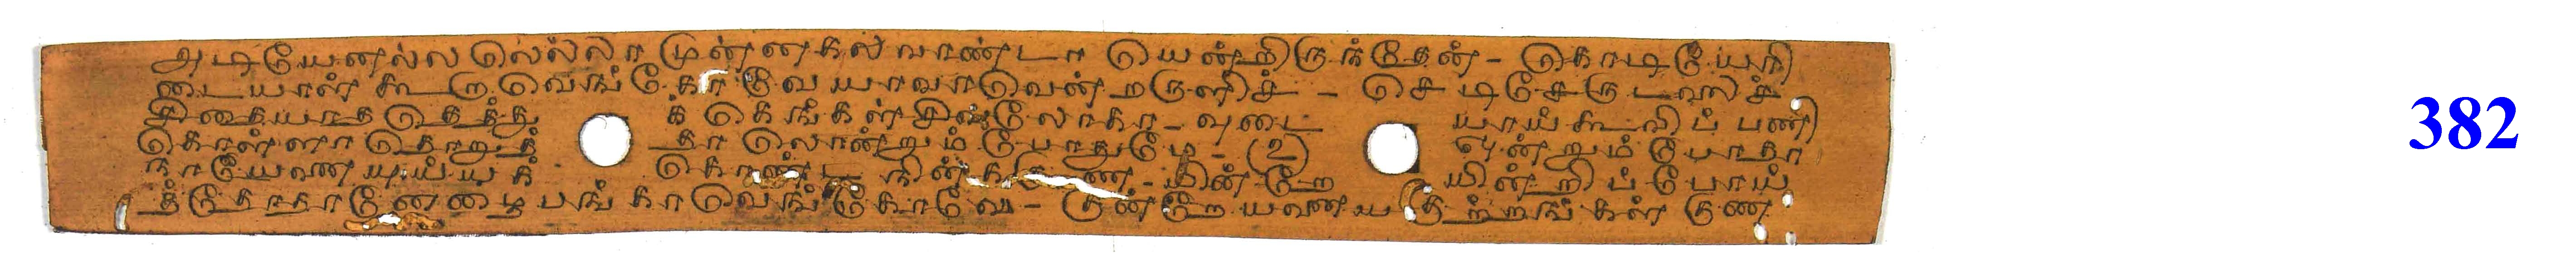 அடியேனல்லலெல்லா முன்னகல வாண்டா யென்றிருந்தேன் - கொடியேரி
டையாள் கூறாவெங்கோவேயாவாவென்றருளிச் - செடிசேருடலைச்
சிதையாததெத்து க்கெங்கள் சிவலோகா - வுடை யாய் கூவிப் பணி
கொள்ளாதொறுத் தாலொன்றும் போதுமே - (௨) ஒன்றும் போதா
நாயேனையுய்யக் கொண்ட நின்கருணை - யின்றே யின்றிப் போய்
த்தோதானேழைபங்காவெங்கோவே - குன்றேயனைய குற்றங்கள் குண
382